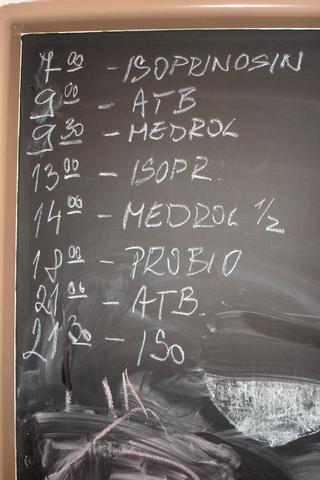 7 00 - ISOPRINOSIN
9 00 - ATB
9 30 - MEDROL
13 00 - ISOPR.
14 00 - MEDROL 1/2
18 00 - PROBIO
21 00 - ATB.
21 30 - ISO